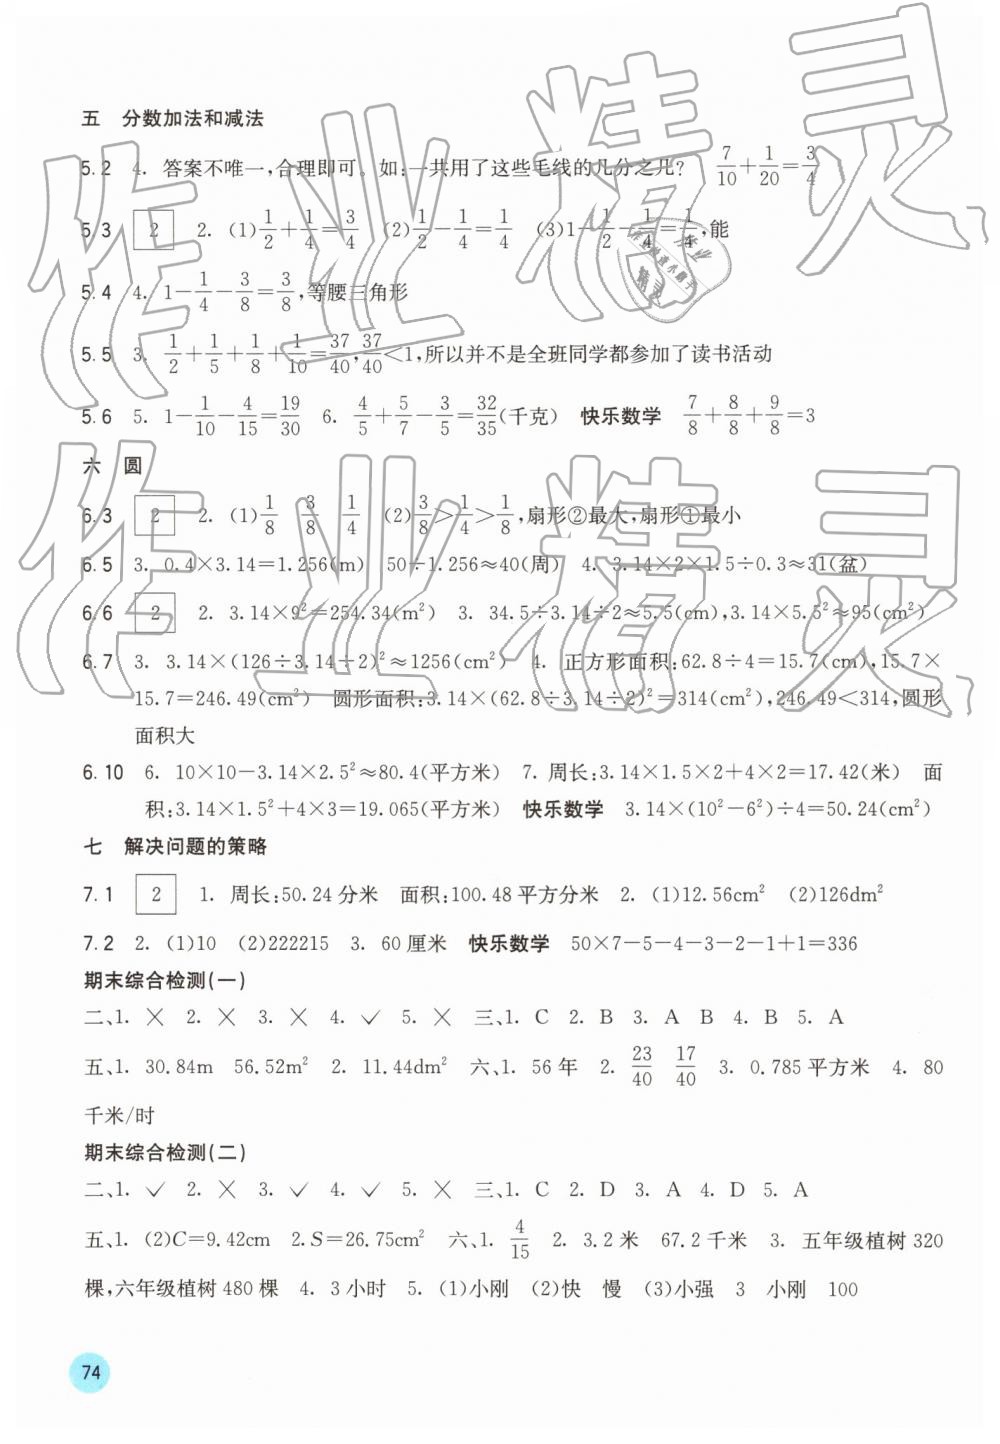 五　分数加法和减法
5.2　4. 答案不唯一,合理即可。如:一共用了这些毛线的几分之几?　7/10+1/20=3/4
5.3　2　2. (1)1/2+1/4=3/4　(2)1/2-1/4=1/4　(3)1-1/2-1/4=1/4,能
5.4　4. 1-1/4-3/8=3/8,等腰三角形
5.5　3. 1/2+1/5+1/8+1/10=37/40,37/40<1,所以并不是全班同学都参加了读书活动
5.6　5. 1-1/10-4/15=19/30　6. 4/5+5/7-3/5=32/35(千克)　快乐数学　7/8+8/8+9/8=3
六　圆
6.3　2　2. (1)1/8　3/8　1/4　(2)3/8>1/4>1/8,扇形②最大,扇形①最小
6.5　3. 0.4×3.14=1.256(m)　50÷1.256≈40(周)　4. 3.14×2×1.5÷0.3≈31(盆)
6.6　2　2. 3.14×9²=254.34(m²)　3. 34.5÷3.14÷2≈5.5(cm),3.14×5.5²≈95(cm²)
6.7　3. 3.14×(126÷3.14÷2)²≈1256(cm²)　4. 正方形面积:62.8÷4=15.7(cm),15.7×
15.7=246.49(cm²)　圆形面积:3.14×(62.8÷3.14÷2)²=314(cm²),246.49<314,圆形
面积大
6.10　6. 10×10-3.14×2.5²≈80.4(平方米)　7. 周长:3.14×1.5×2+4×2=17.42(米)　面
积:3.14×1.5²+4×3=19.065(平方米)　快乐数学　3.14×(10²-6²)÷4=50.24(cm²)
七　解决问题的策略
7.1　2　1. 周长:50.24分米　面积:100.48平方分米　2. (1)12.56cm²　(2)126dm²
7.2　2. (1)10　(2)222215　3. 60厘米　快乐数学　50×7-5-4-3-2-1+1=336
期末综合检测(一)
二、1. ×　2. ×　3. ×　4. ✓　5. ×　三、1. C　2. B　3. A　B　4. B　5. A
五、1. 30.84m　56.52m²　2. 11.44dm²　六、1. 56年　2. 23/40　17/40　3. 0.785平方米　4. 80
千米/时
期末综合检测(二)
二、1. ✓　2. ×　3. ✓　4. ✓　5. ×　三、1. C　2. D　3. A　4. D　5. A
五、1. (2)C=9.42cm　2.S=26.75cm²　六、1. 4/15　2. 3.2米　67.2千米　3. 五年级植树320
棵,六年级植树480棵　4. 3小时　5. (1)小刚　(2)快　慢　(3)小强　3　小刚　100
74
作业精灵
作业精灵